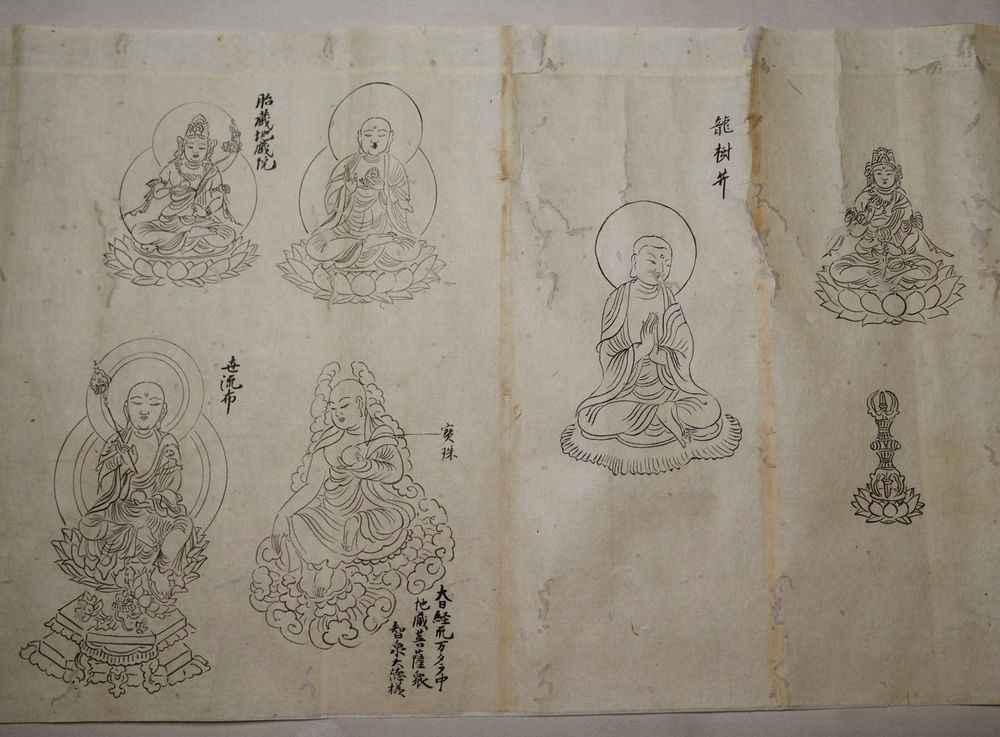 龍樹𦬇
胎蔵地蔵院
寳珠
世流布
大日経疏万タラ中
地蔵菩薩衆
智泉大徳様